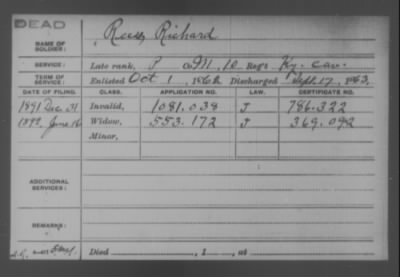 DEAD
NAME OF SOLDIER: Reese Richard
SERVICE: Late rank, P Co. M, 10 Reg't Ky. Cav.
TERM OF SERVICE: Enlisted Oct 1, 1862 Discharged Sept. 17, 1863.
DATE OF FILING. CLASS. APPLICATION NO. LAW. CERTIFICATE NO.
1891 Dec. 31 Invalid, 1081.038 J 786.322
June 16 Widow, 553.172 J 369.092
Minor,
ADDITIONAL SERVICES:
REMARKS:
Died , 1 , at